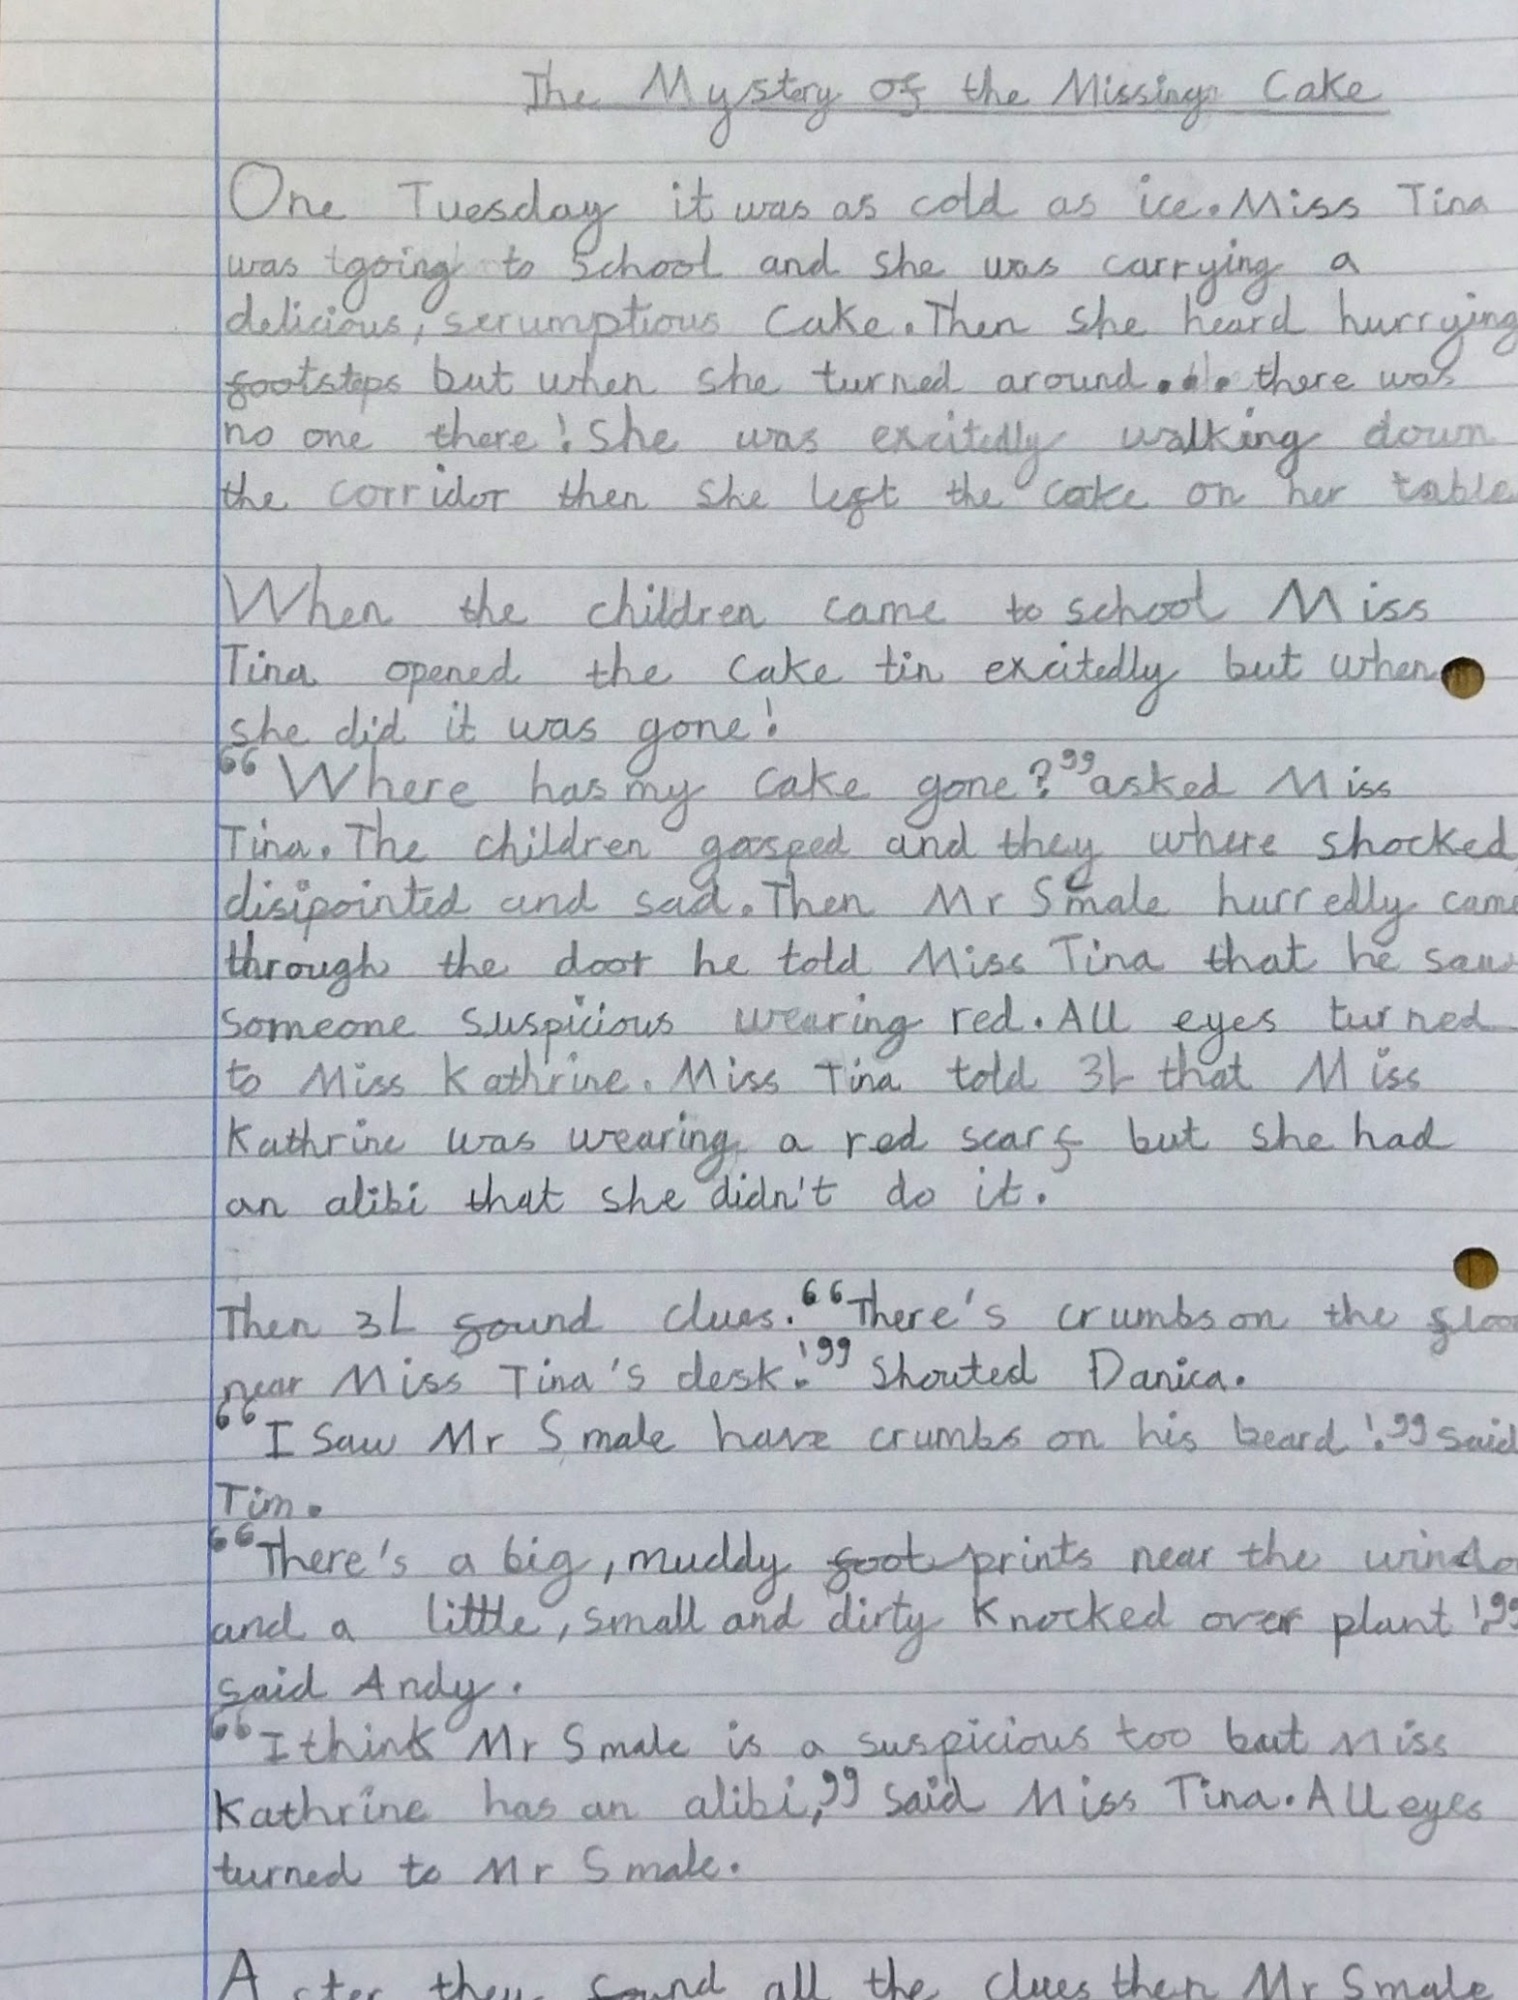 The Mystery of the Missing Cake
One Tuesday it was as cold as ice. Miss Tina
was going to school and she was carrying a
delicious, scrumptious cake. Then she heard hurrying
footsteps but when she turned around... there was
no one there! She was excitedly walking down
the corridor then she left the cake on her table
When the children came to school Miss
Tina opened the cake tin excitedly but when
she did it was gone!
“Where has my cake gone?” asked Miss
Tina. The children gasped and they where shocked,
disipointed and sad. Then Mr Smale hurredly came
through the door he told Miss Tina that he saw
someone suspicious wearing red. All eyes turned
to Miss Kathrine. Miss Tina told 3L that Miss
Kathrine was wearing a red scarf but she had
an alibi that she didn't do it.
Then 3L found clues. “There's crumbs on the floor
near Miss Tina's desk!” Shouted Danica.
“I saw Mr Smale have crumbs on his beard!” said
Tim.
“There's a big, muddy foot prints near the windo
and a little, small and dirty knocked over plant!”
said Andy.
“I think Mr Smale is a suspicious too but Miss
Kathrine has an alibi,” said Miss Tina. All eyes
turned to Mr Smale.
After they found all the clues then Mr Smale